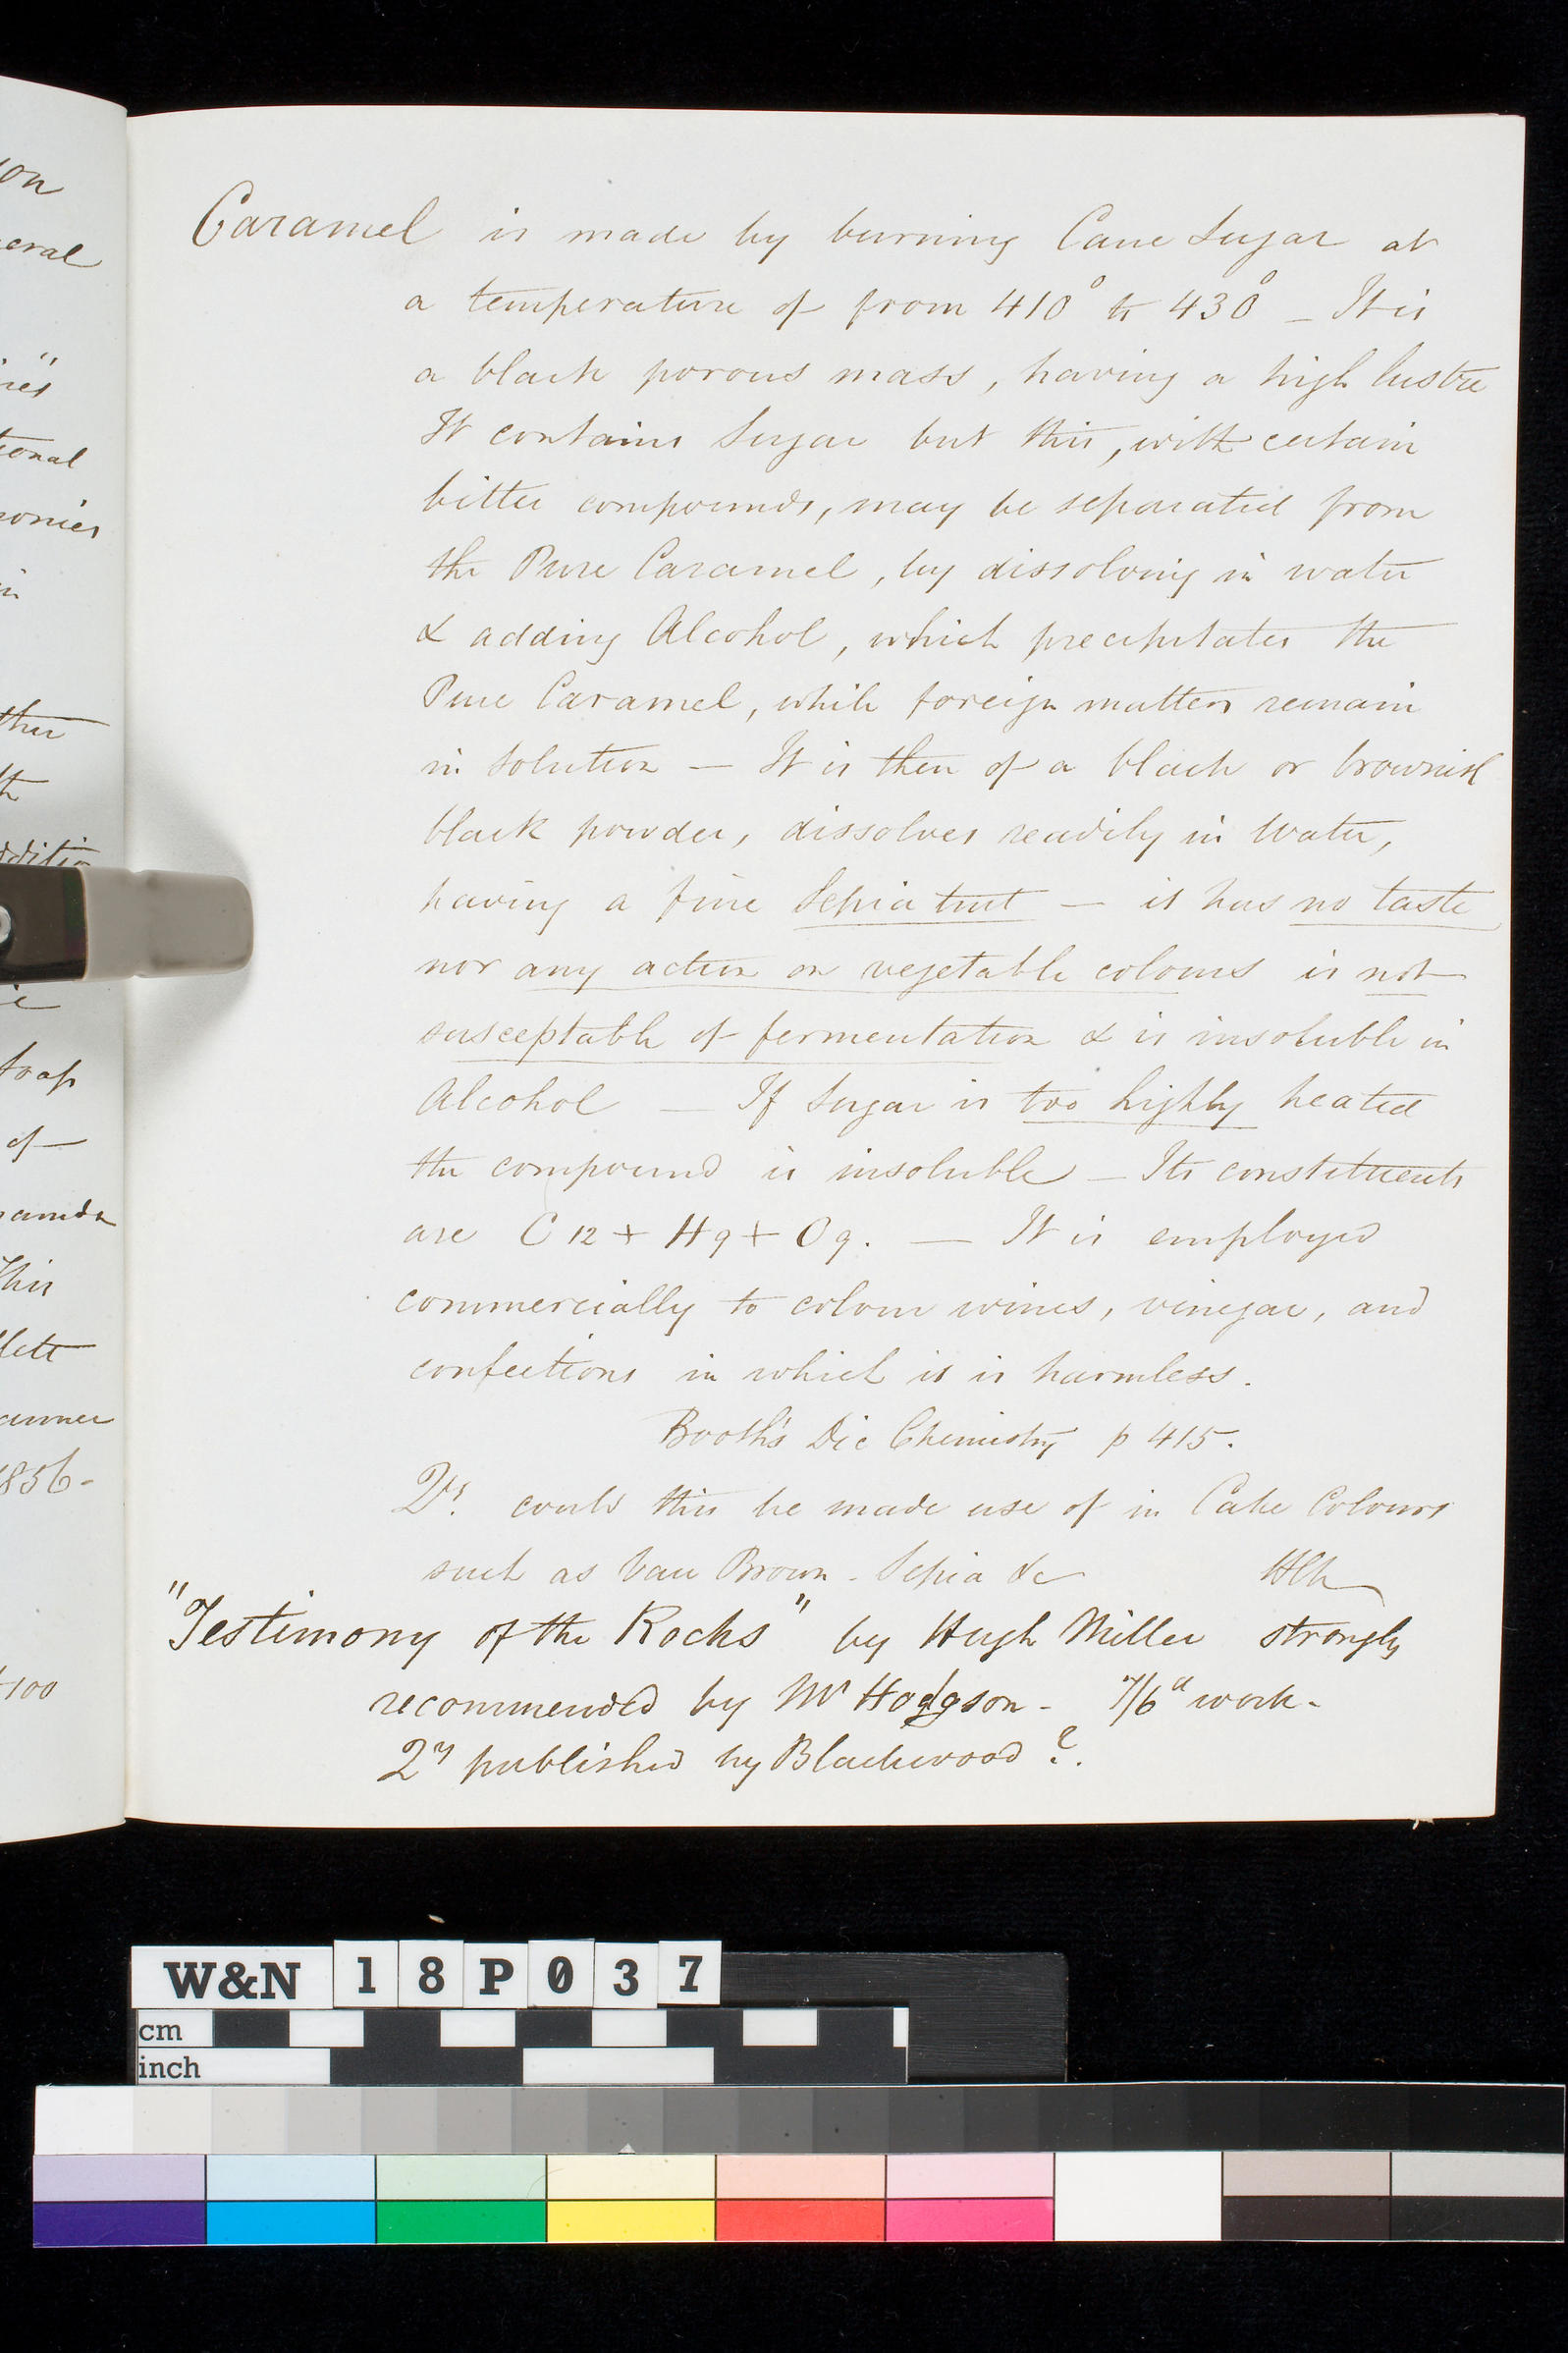 Caramel is made by burning Cane Sugar at
a temperature of from 410° to 430° – It is
a black porous mass, having a high lustre
It contains Sugar but this, with certain
bitter compounds, may be separated from
the Pure Caramel, by dissolving in water
& adding Alcohol, which precipitates the
Pure Caramel, while foreign matters remain
in solution – It is then of a black or brownish
black powder, dissolves readily in Water,
having a fine Sepia tint – it has no taste
nor any action on vegetable colours is not
susceptable of fermentation & is insoluble in
Alcohol – If Sugar is too highly heated
the compound is insoluble – Its constituents
are C 12 + H 9 + O 9. – It is employed
commercially to colour wines, vinegar, and
confections in which it is harmless.
Booth's Dic Chemistry p 415.
Qy. could this be made use of in Cake Colours
such as Van Brown - Sepia &c
"Testimony of the Rocks" by Hugh Miller strongly
recommended by Mr Hodgson - 7/6d work -
Qy published by Blackwood ?.
on
eral
tional
onies
in
ther
th
dditio
Soap
of
This
anner
1856-
100
W&N 18P037
cm
inch